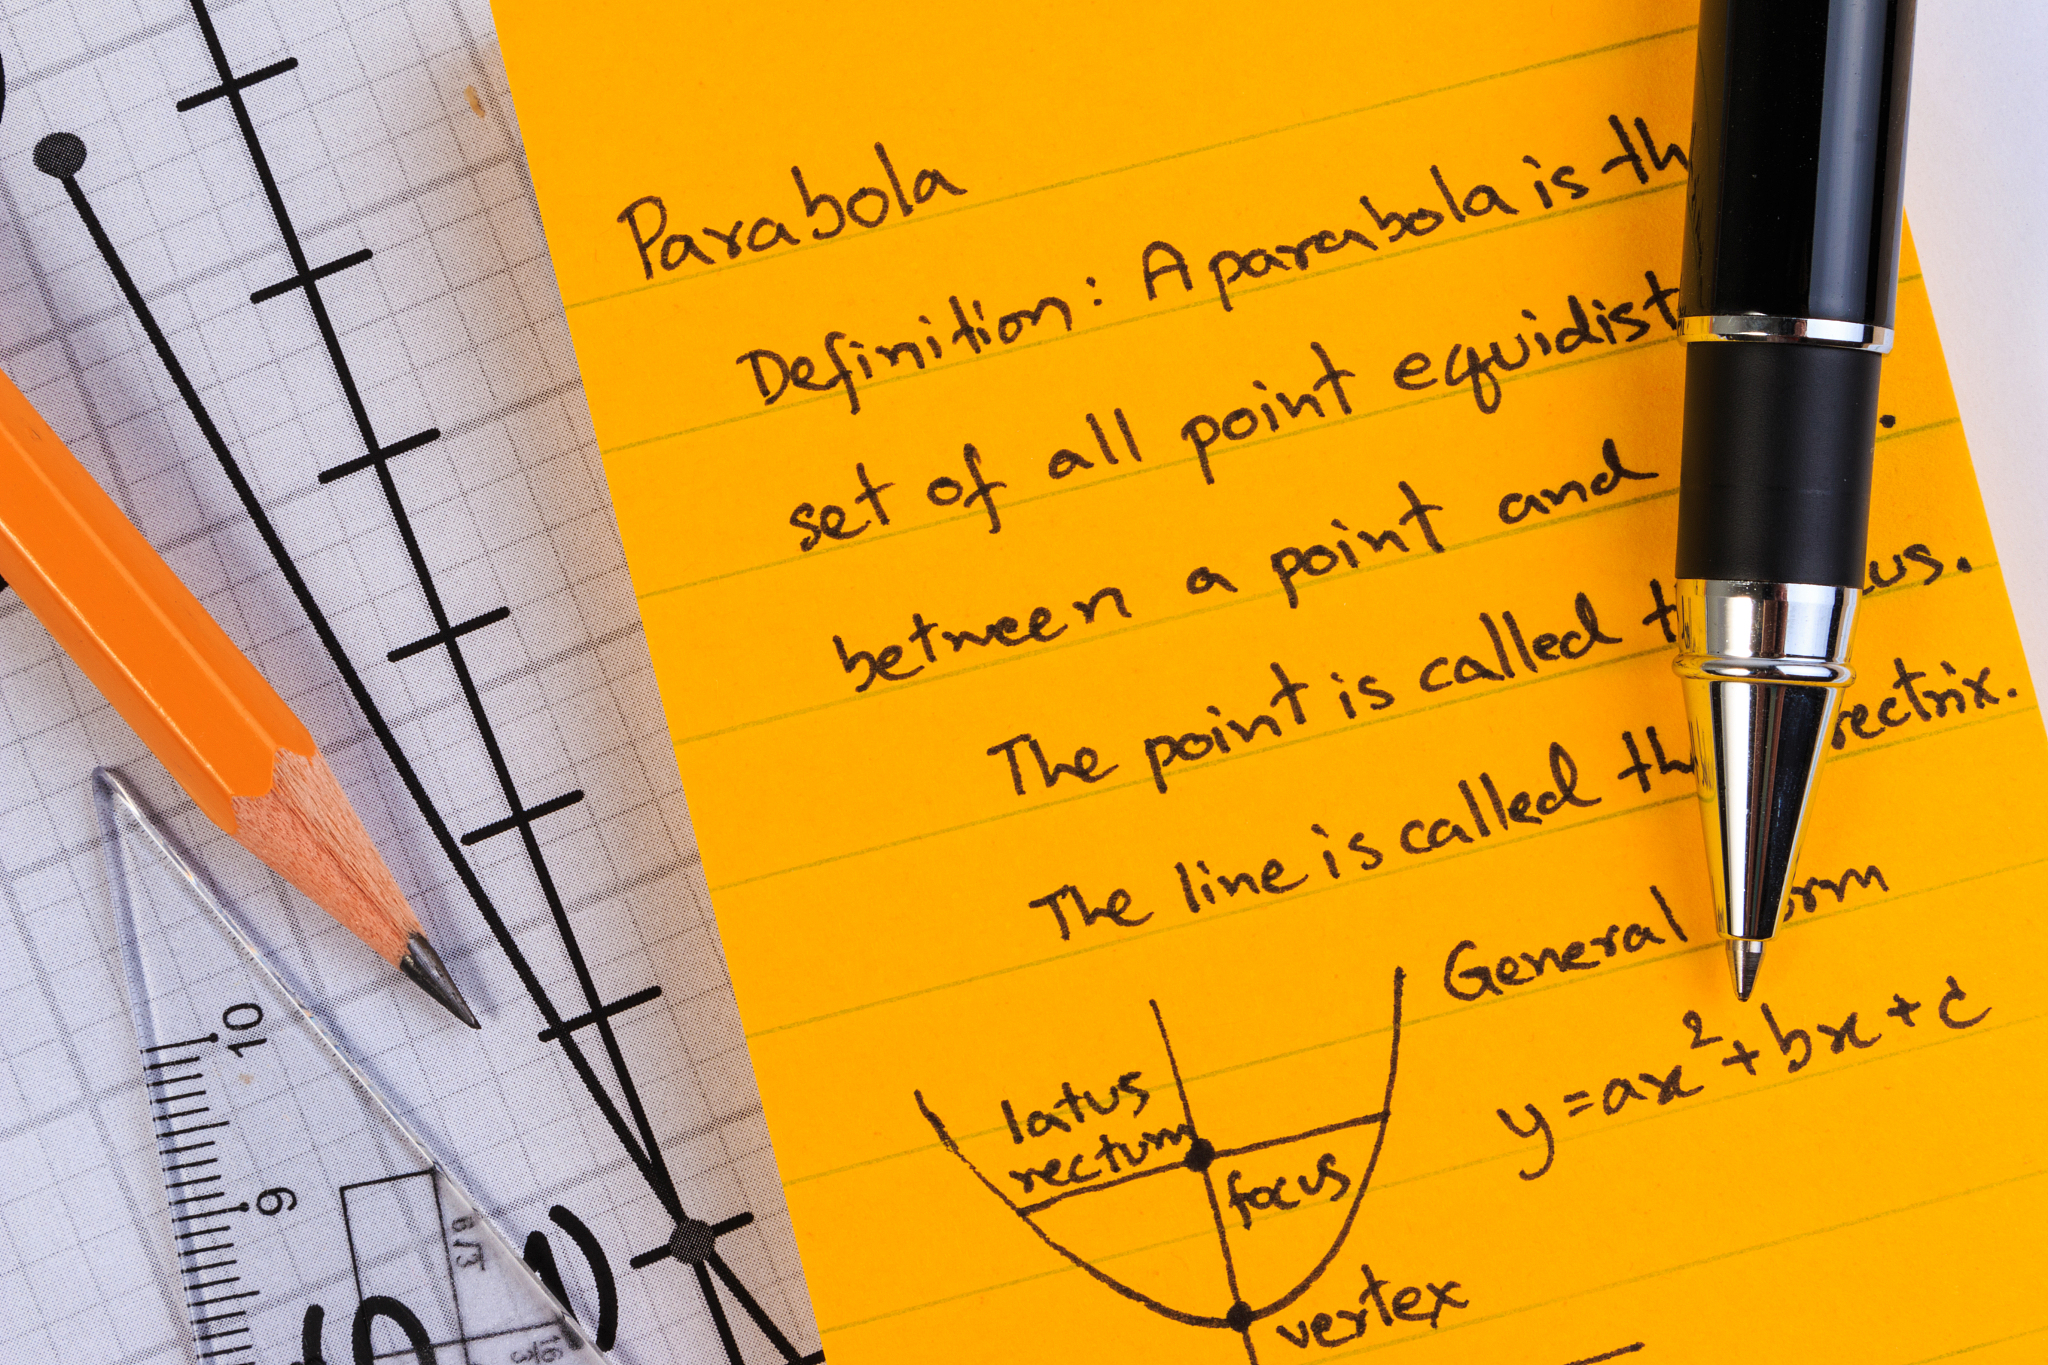 Parabola
Definition: A parabola is th
set of all point equidist
between a point and .
The point is called t us.
The line is called th rectrix.
General orm
y = ax² + bx + c
latus
rectum
focus
vertex
10
9